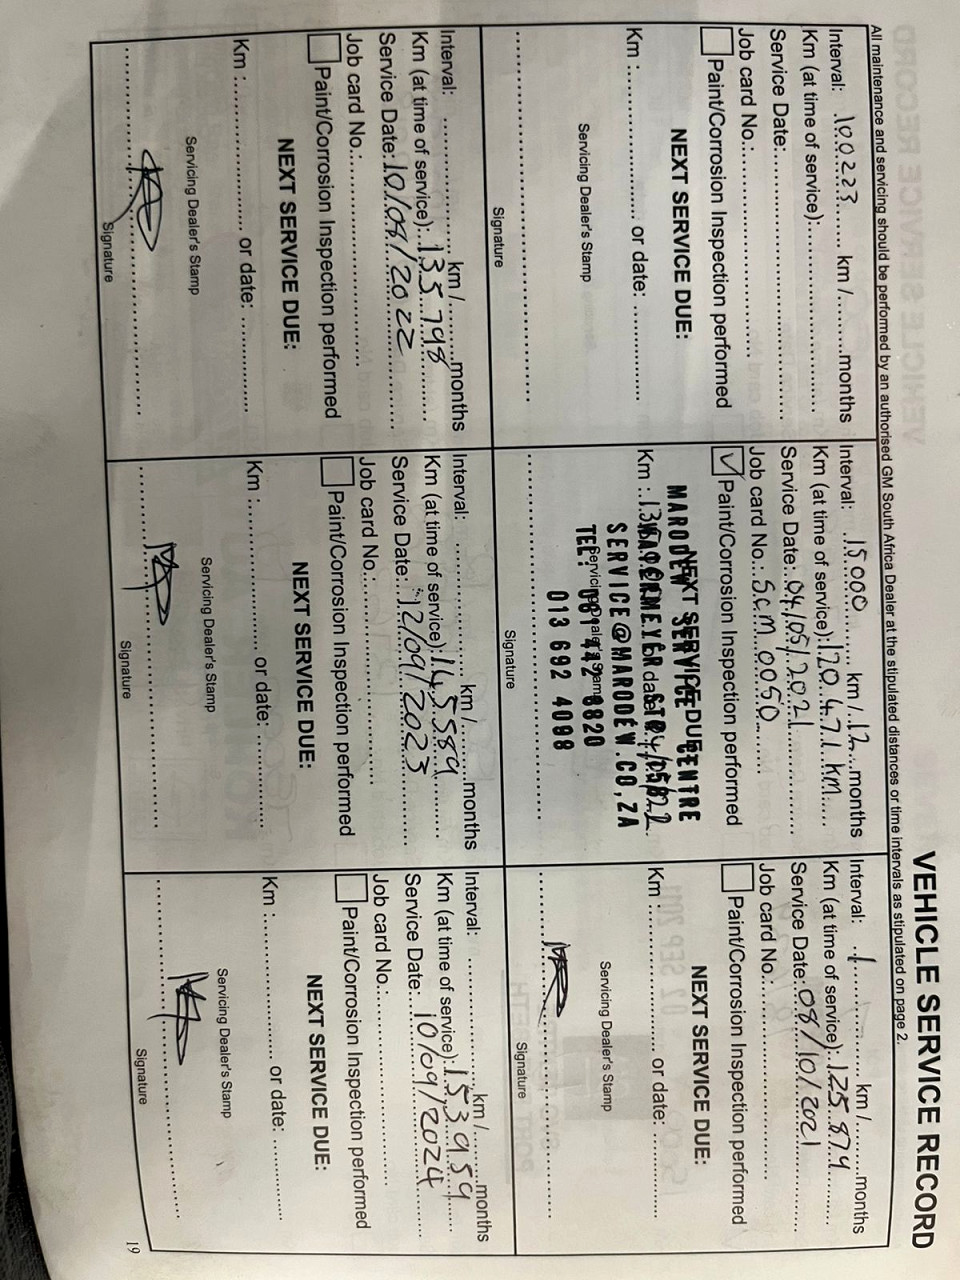 VEHICLE SERVICE RECORD
All maintenance and servicing should be performed by an authorised GM South Africa Dealer at the stipulated distances or time intervals as stipulated on page 2.
Interval: 10.0223 km / months
Km (at time of service):
Service Date:
Job card No.:
Paint/Corrosion Inspection performed
NEXT SERVICE DUE:
Km : or date:
Servicing Dealer's Stamp
Signature
Interval: 15000 km / 12 months
Km (at time of service): 120 471 km
Service Date: 04/05/2021
Job card No.: SCM 0050
✓ Paint/Corrosion Inspection performed
NEXT SERVICE DUE:
MARODEW SERVICE CENTRE
Km : 13 or date: 04/05/22
WATERMEYER STR
SERVICE@MARODEW.CO,ZA
Servicing Dealer's Stamp
TEL: 081 442 8820
013 692 4098
Signature
Interval: 1 km / months
Km (at time of service): 125 879
Service Date: 08/10/2021
Job card No.:
Paint/Corrosion Inspection performed
NEXT SERVICE DUE:
Km : or date:
Servicing Dealer's Stamp
Signature
Interval: km / months
Km (at time of service): 135 798
Service Date: 10/08/2022
Job card No.:
Paint/Corrosion Inspection performed
NEXT SERVICE DUE:
Km : or date:
Servicing Dealer's Stamp
Signature
Interval: km / months
Km (at time of service): 145 589
Service Date: 12/09/2023
Job card No.:
Paint/Corrosion Inspection performed
NEXT SERVICE DUE:
Km : or date:
Servicing Dealer's Stamp
Signature
Interval: km / months
Km (at time of service): 153 959
Service Date: 10/09/2024
Job card No.:
Paint/Corrosion Inspection performed
NEXT SERVICE DUE:
Km : or date:
Servicing Dealer's Stamp
Signature
19